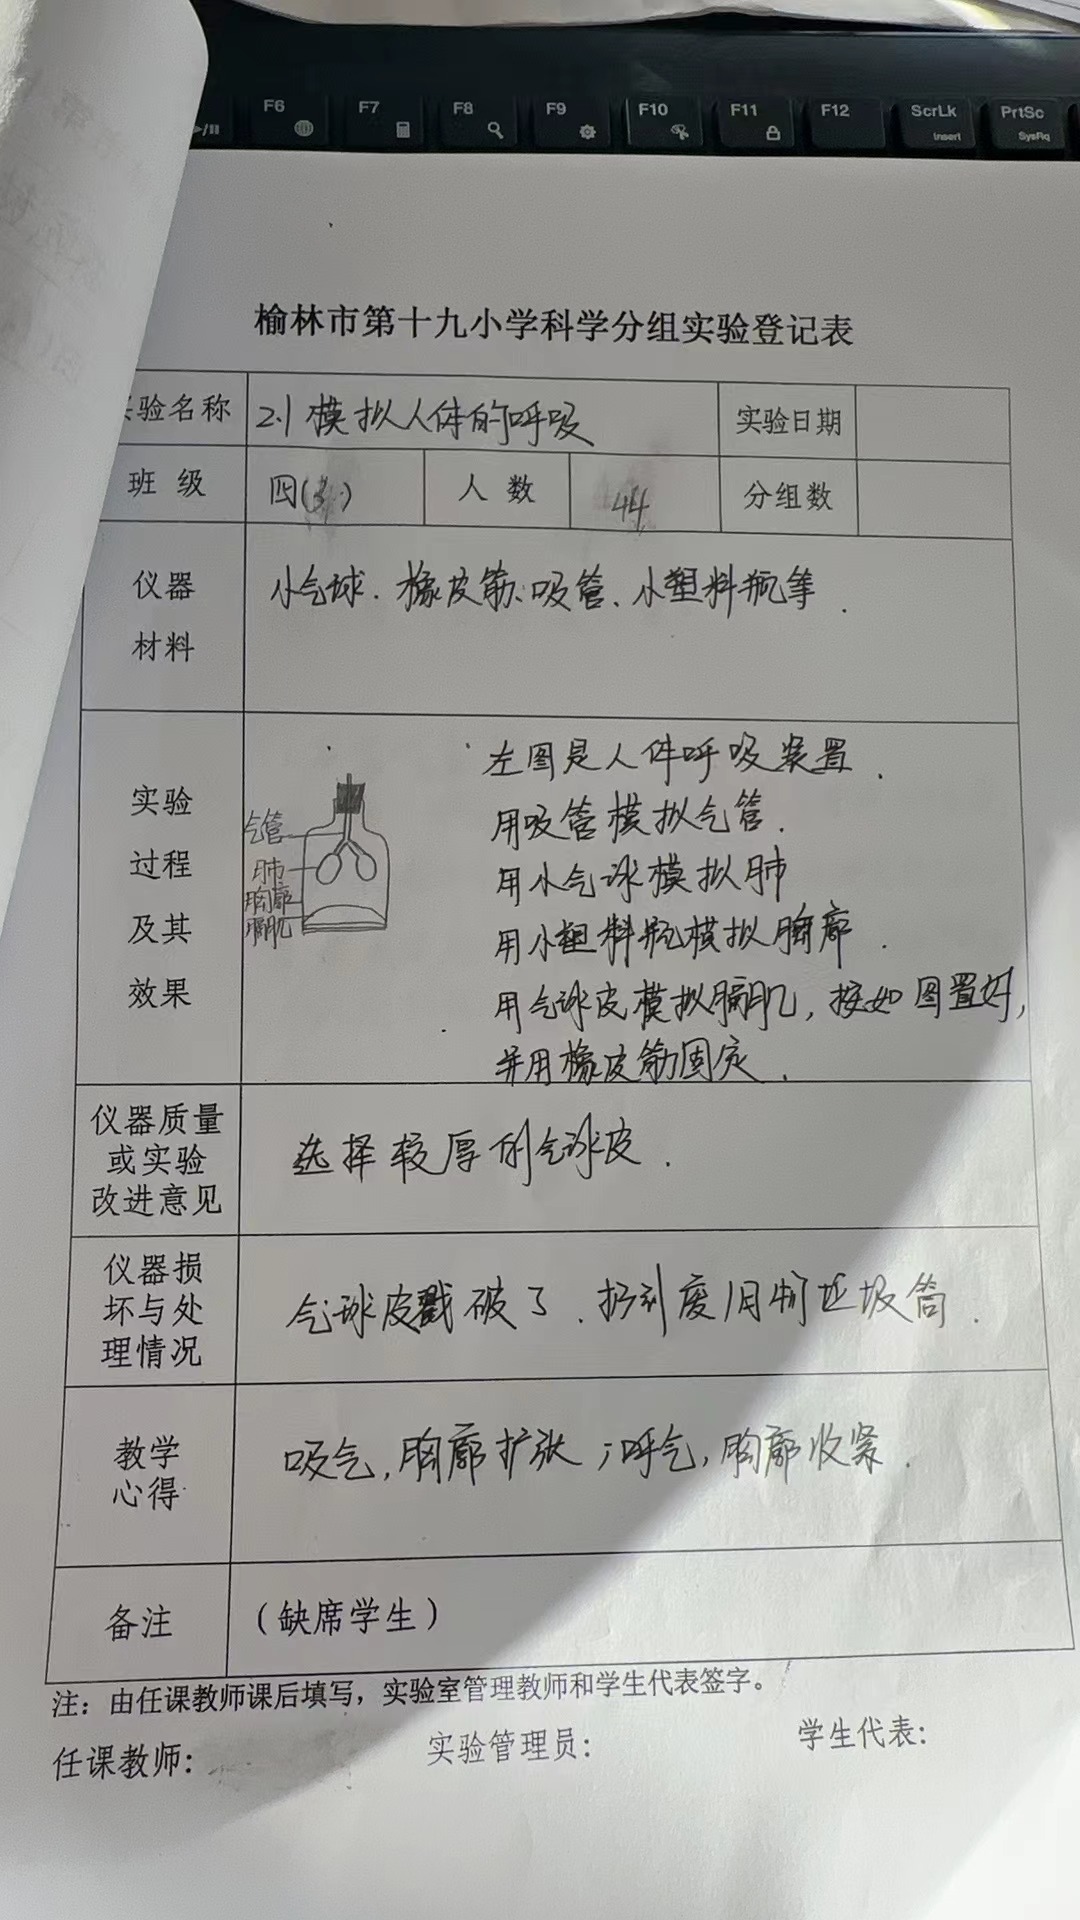 F6 F7 F8 F9 F10 F11 F12 ScrLk PrtSc
Insert SysRq
榆林市第十九小学科学分组实验登记表
验名称 2.1 模拟人体的呼吸 实验日期
班 级 四(3) 人 数 44 分组数
仪器
材料
小气球. 橡皮筋、吸管、小塑料瓶等.
实验
过程
及其
效果
气管
肺
胸廓
膈肌
左图是人体呼吸装置.
用吸管模拟气管.
用小气球模拟肺
用小塑料瓶模拟胸廓.
用气球皮模拟膈肌, 按如图置好,
并用橡皮筋固定.
仪器质量
或实验
改进意见
选择较厚的气球皮.
仪器损
坏与处
理情况
气球皮戳破了. 扔到废旧物垃圾筒.
教学
心得
吸气, 胸廓扩张; 呼气, 胸廓收紧.
备注 (缺席学生)
注：由任课教师课后填写，实验室管理教师和学生代表签字。
任课教师: 实验管理员: 学生代表: